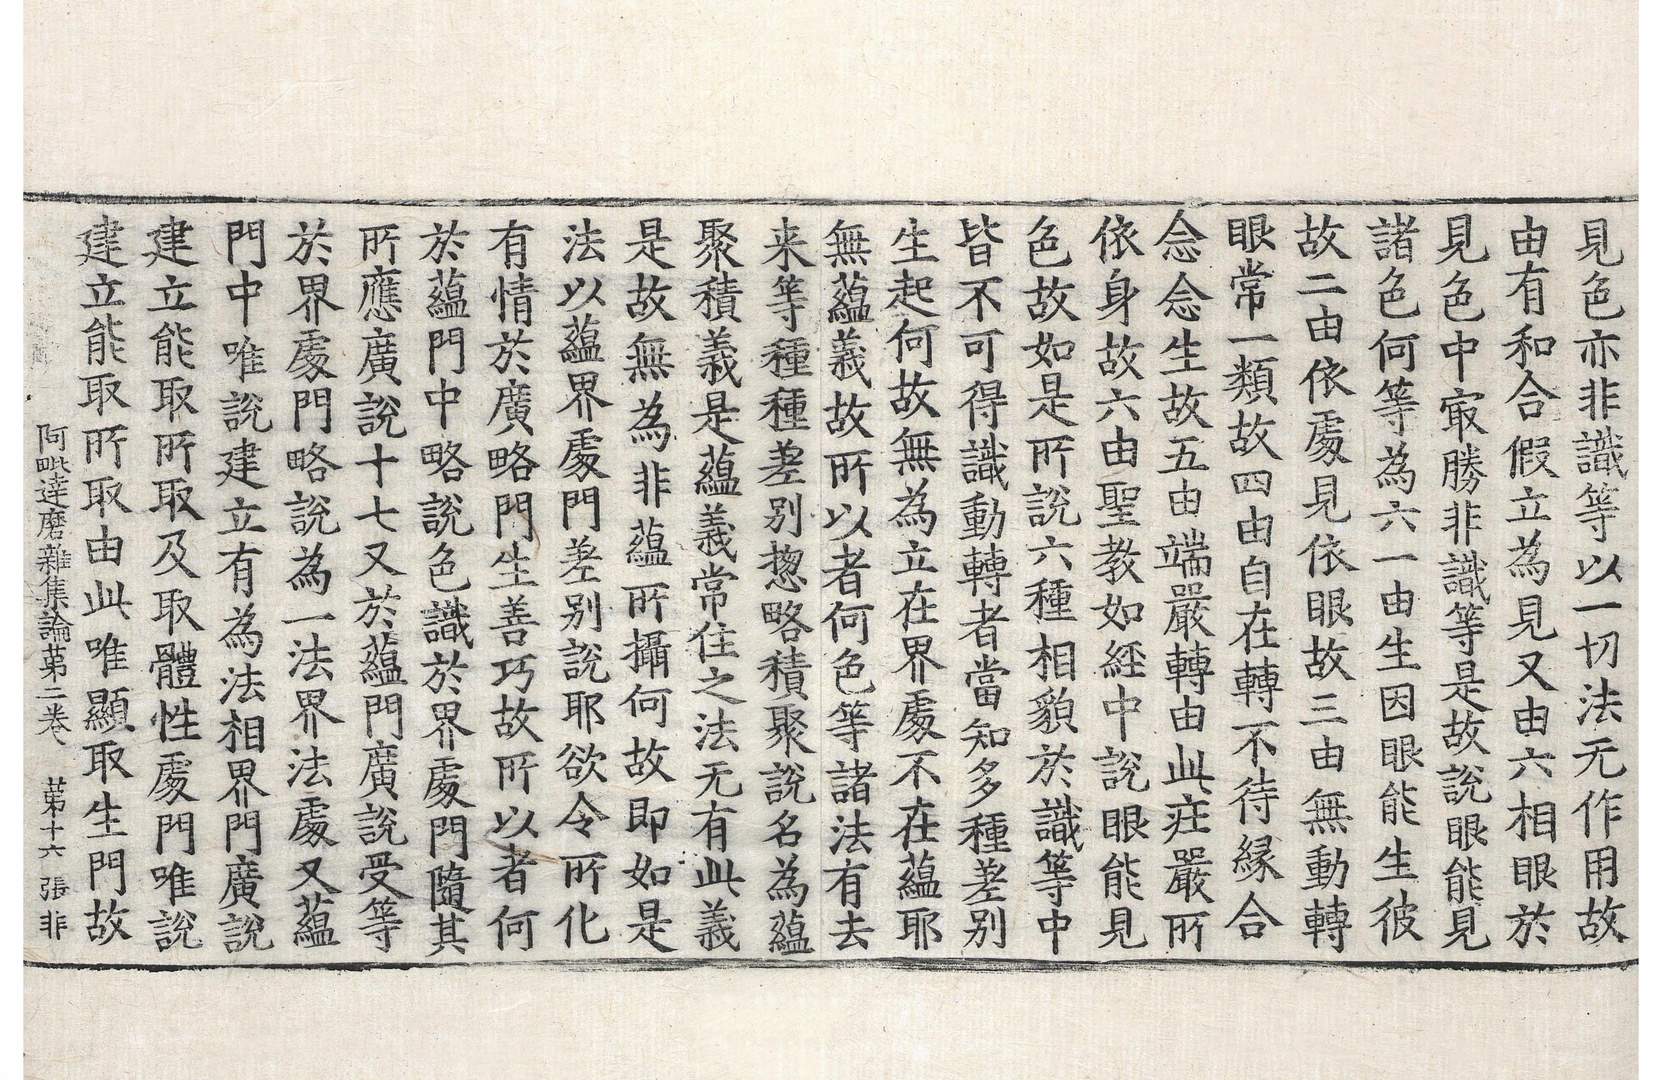 見色亦非識等以一切法无作用故
由有和合假立為見又由六相眼於
見色中㝡勝非識等是故說眼能見
諸色何等為六一由生因眼能生彼
故二由依處見依眼故三由無動轉
眼常一類故四由自在轉不待緣合
念念生故五由端嚴轉由此莊嚴所
依身故六由聖教如經中說眼能見
色故如是所說六種相貌於識等中
皆不可得識動轉者當知多種差別
生起何故無為立在界處不在蘊耶
無蘊義故所以者何色等諸法有去
来等種種差別揔略積聚說名為蘊
聚積義是蘊義常住之法无有此義
是故無為非蘊所攝何故即如是
法以蘊界處門差別說耶欲令所化
有情於廣略門生善巧故所以者何
於蘊門中略說色識於界處門隨其
所應廣說十七又於蘊門廣說受等
於界處門略說為一法界法處又蘊
門中唯說建立有為法相界門廣說
建立能取所取及取體性處門唯說
建立能取所取由此唯顯取生門故
阿毗達磨雜集論第二卷 第十六 張非